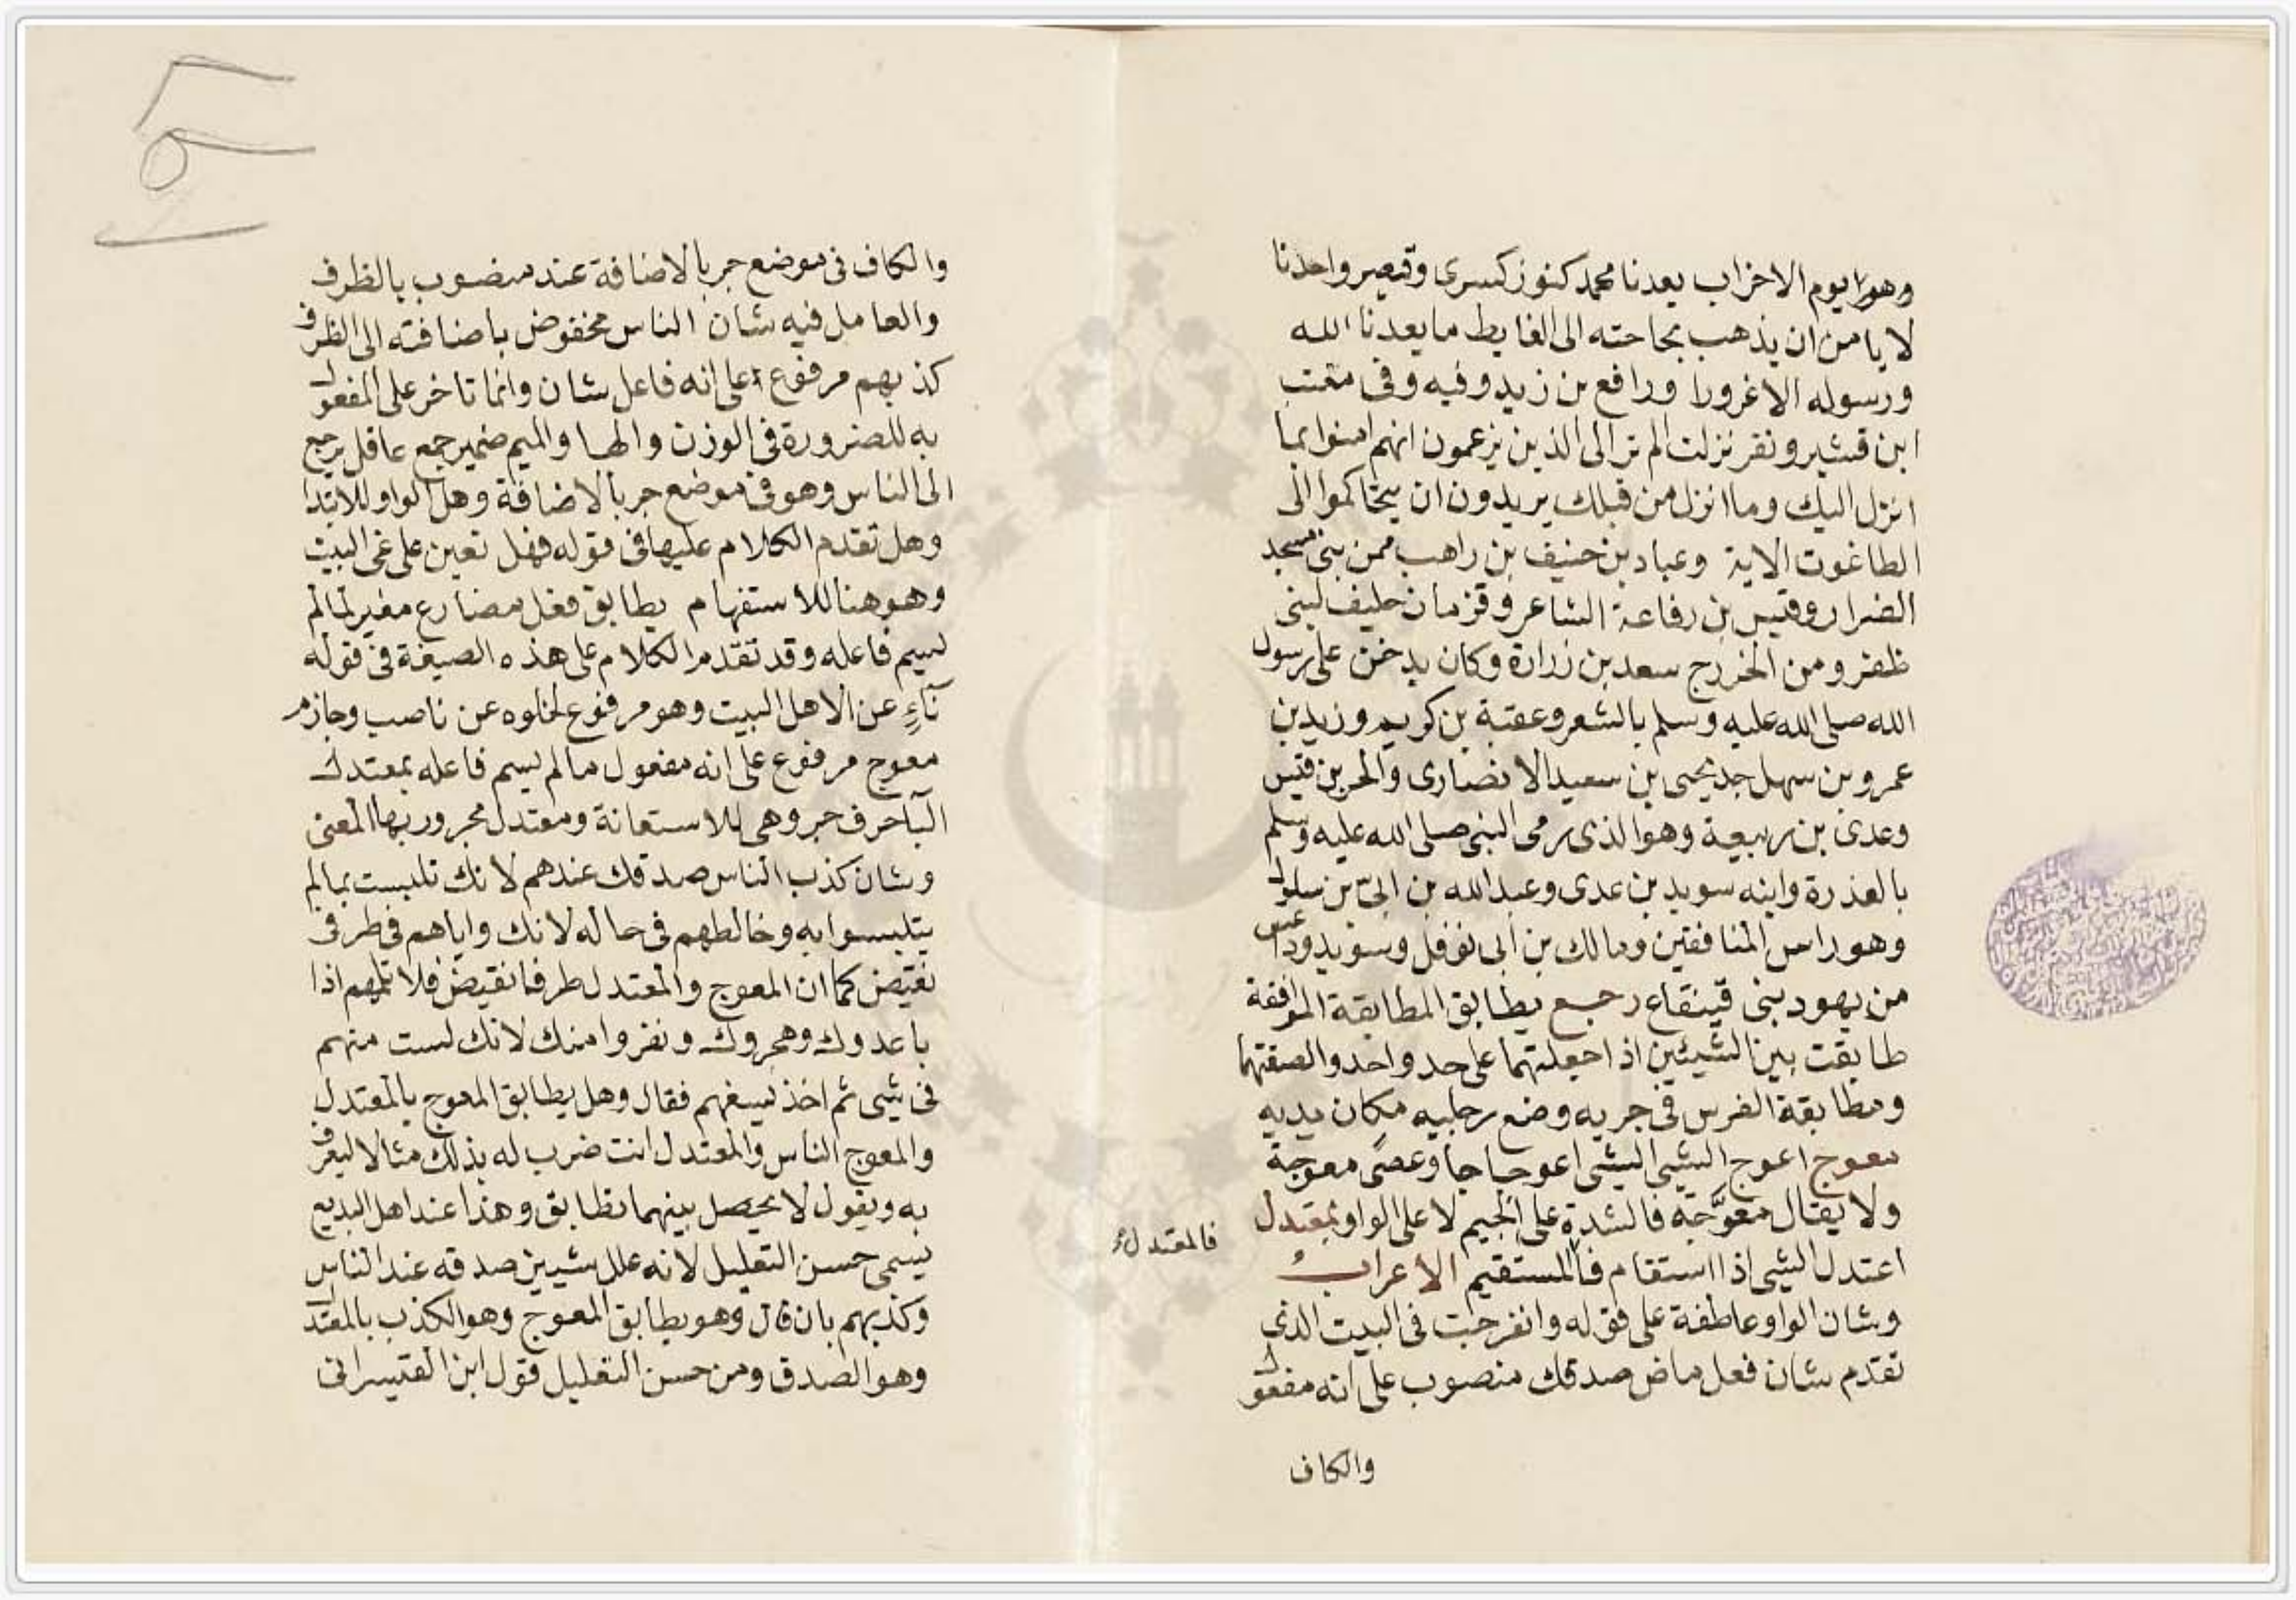 وهو يوم الاخزاب يعدنا محمد كنوز كسرى وقيصر واحدنا
لا يامن ان يذهب بحاجته الى الغايط ما يعدنا الله
ورسوله الا غرورا ورافع بن زيد وفيه وفى معتب
ابن قشير ونفر نزلت الم تر الى الذين يزعمون انهم امنوا بما
انزل اليك وما انزل من قبلك يريدون ان يتحاكموا الى
الطاغوت الاية وعباد بن حنيف بن راهب ممن بنى مسجد
الضرار وقيس بن رفاعة الشاعر وقزمان حليف لبنى
ظفر ومن الخزرج سعد بن زرارة وكان يدخن على رسول
الله صلى الله عليه وسلم بالشعر وعقبة بن كريم وزيد بن
عمرو بن سهل جد يحيى بن سعيد الانصارى والحر بن قيس
وعدى بن ربيعة وهو الذى رمى النبى صلى الله عليه وسلم
بالعذرة وابنه سويد بن عدى وعبد الله بن ابىّ بن سلول
وهو راس المنافقين ومالك بن ابى نوفل وسويد وداعس
من يهود بنى قينقاع رجع يطابق المطابقة الموافقة
طابقت بين الشيئين اذا جعلتهما على حد واحد والصقتهما
ومطابقة الفرس فى جريه وضع رجليه مكان يديه
معوج اعوج الشى الشى اعوجاجا وعصًى معوجة
ولا يقال معوَّجة فالشدة على الجيم لا على الواو بمعتدل
اعتدل الشى اذا استقام فالمستقيم الاعراب
فالمعتدل
وشان الواو عاطفة على قوله وانفرجت فى البيت الذى
تقدم شان فعل ماض صدقك منصوب على انه مفعول
والكاف
والكاف فى موضع جر بالاضافة عند منصوب بالظرف
والعامل فيه شان الناس مخفوض باضافته الى الظرف
كذبهم مرفوع على انه فاعل شان وانما تاخر على المفعول
به للضرورة فى الوزن والها والميم ضمير جمع عاقل يرجع
الى الناس وهو فى موضع جر بالاضافة وهل الواو للابتدا
وهل تقدم الكلام عليها فى قوله فهل تعين على غى البيت
وهو هنا للاستفهام يطابق فعل مضارع مغير لما لم
يسم فاعله وقد تقدم الكلام على هذه الصيغة فى قوله
نآءٍ عن الاهل البيت وهو مرفوع لخلوه عن ناصب وجازم
معوج مرفوع على انه مفعول ما لم يسم فاعله بمعتدل
البآ حرف جر وهى للاستعانة ومعتدل مجرور بها المعنى
وشان كذب الناس صدقك عندهم لانك تلبست بما لم
يتلبسوا به وخالطهم فى حاله لانك واياهم فى طرفى
نقيض كما ان المعوج والمعتدل طرفا نقيض فلا تلمهم اذا
باعدوك وهجروك ونفروا منك لانك لست منهم
فى شى ثم اخذ يسفهم فقال وهل يطابق المعوج بالمعتدل
والمعوج الناس والمعتدل انت ضرب له بذلك مثالا ليعرف
به ويقول لا يحصل بينهما تطابق وهذا عند اهل البديع
يسمى حسن التعليل لانه علل شيين صدقه عند الناس
وكذبهم بان قال وهو يطابق المعوج وهو الكذب بالمعتدل
وهو الصدق ومن حسن التعليل قول ابن القيسرانى